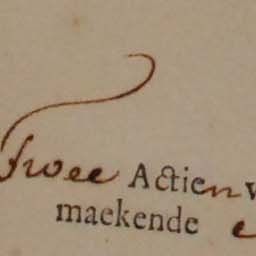 Twee Actien
maekende